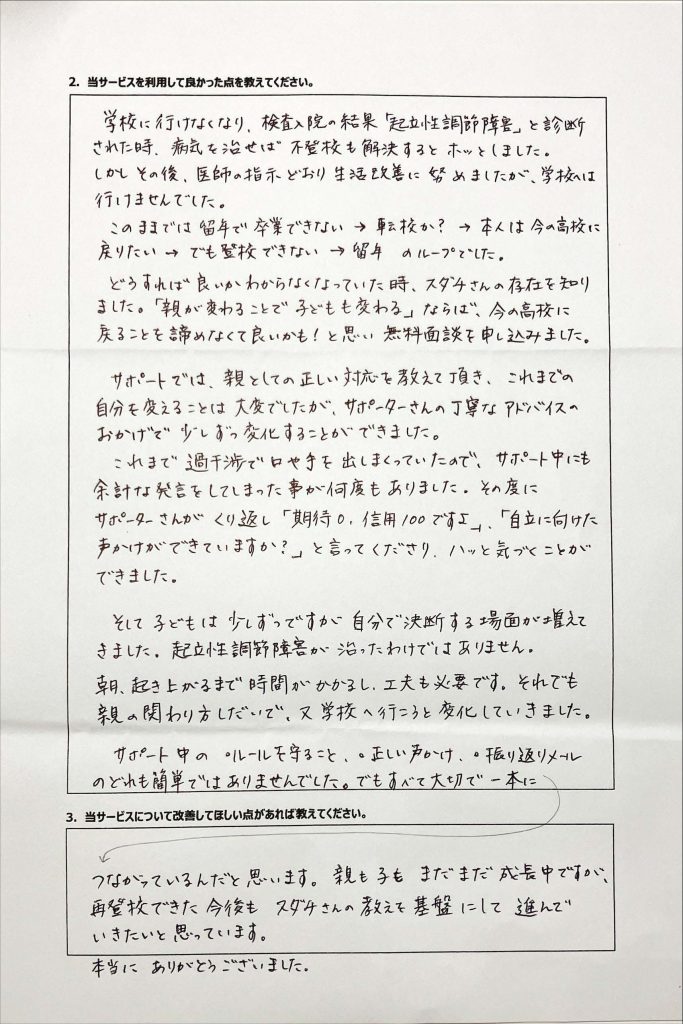 2. 当サービスを利用して良かった点を教えてください。
学校に行けなくなり、検査入院の結果「起立性調節障害」と診断
された時、病気を治せば不登校も解決するとホッとしました。
しかしその後、医師の指示どおり生活改善に努めましたが、学校へは
行けませんでした。
このままでは留年で卒業できない→転校か?→本人は今の高校に
戻りたい→でも登校できない→留年 のループでした。
どうすれば良いかわからなくなっていた時、スダチさんの存在を知り
ました。「親が変わることで子どもも変わる」ならば、今の高校に
戻ることを諦めなくて良いかも!と思い無料面談を申し込みました。
サポートでは、親としての正しい対応を教えて頂き、これまでの
自分を変えることは大変でしたが、サポーターさんの丁寧なアドバイスの
おかげで少しずつ変化することができました。
これまで過干渉で口や手を出しまくっていたので、サポート中にも
余計な発言をしてしまった事が何度もありました。その度に
サポーターさんがくり返し「期待0、信用100ですよ」、「自立に向けた
声かけができていますか?」と言ってくださり、ハッと気づくことが
できました。
そして子どもは少しずつですが自分で決断する場面が増えて
きました。起立性調節障害が治ったわけではありません。
朝、起き上がるまで時間がかかるし、工夫も必要です。それでも
親の関わり方しだいで、又学校へ行こうと変化していきました。
サポート中の 。ルールを守ること、。正しい声かけ、。振り返りメール
のどれも簡単ではありませんでした。でもすべて大切で一本に
3. 当サービスについて改善してほしい点があれば教えてください。
つながっているんだと思います。親も子もまだまだ成長中ですが、
再登校できた今後もスダチさんの教えを基盤にして進んで
いきたいと思っています。
本当にありがとうございました。